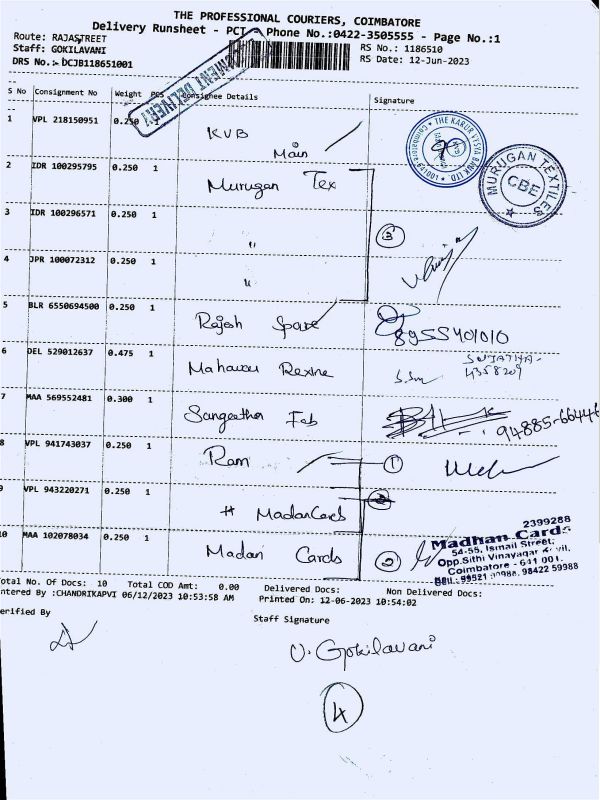 THE PROFESSIONAL COURIERS, COIMBATORE
Delivery Runsheet - PCT - Phone No.:0422-3505555 - Page No.:1
Route: RAJASTREET
RS No.: 1186510
Staff: GOKILAVANI
RS Date: 12-Jun-2023
DRS No.:- DCJB118651001
DELIVERY
S No Consignment No Weight PCS Consignee Details Signature
1 VPL 218150951 0.250 1 KVB Main
THE KARUR VYSYA BANK LTD.
2 IDR 100295795 0.250 1 Murugan Tex
MURUGAN TEXTILES
CBE
3 IDR 100296571 0.250 1 "
3
4 JPR 100072312 0.250 1 "
5 BLR 6550694500 0.250 1 Rajesh Spare
8955401010
6 DEL 529012637 0.475 1 Rexine
4358209
7 MAA 569552481 0.300 1 Sangeetha Fab
94885-66446
8 VPL 941743037 0.250 1 Ram
1
9 VPL 943220271 0.250 1 # Madan Cards
2
10 MAA 102078034 0.250 1 Madan Cards
2
2399288
Madhan Cards
54-55, Ismail Street,
Opp.Sithi Vinayagar
Coimbatore - 641 001.
98422 59988
Total No. Of Docs: 10 Total COD Amt: 0.00 Delivered Docs: Non Delivered Docs:
ntered By :CHANDRIKAPVI 06/12/2023 10:53:58 AM Printed On: 12-06-2023 10:54:02
erified By
Staff Signature
V. Gokilavani
4